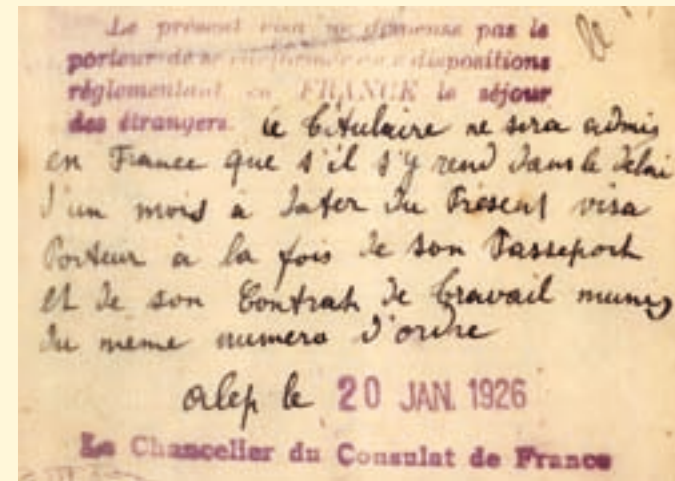 Le présent visa ne dispense pas le
porteur de se conformer aux dispositions
réglementant en FRANCE le séjour
des étrangers. Le titulaire ne sera admis
en France que s'il s'y rend dans le délai
d'un mois à dater du Présent visa
Porteur à la fois de son Passeport
et de son Contrat de travail munis
du meme numero d'ordre
alep le 20 JAN. 1926
Le Chancelier du Consulat de France